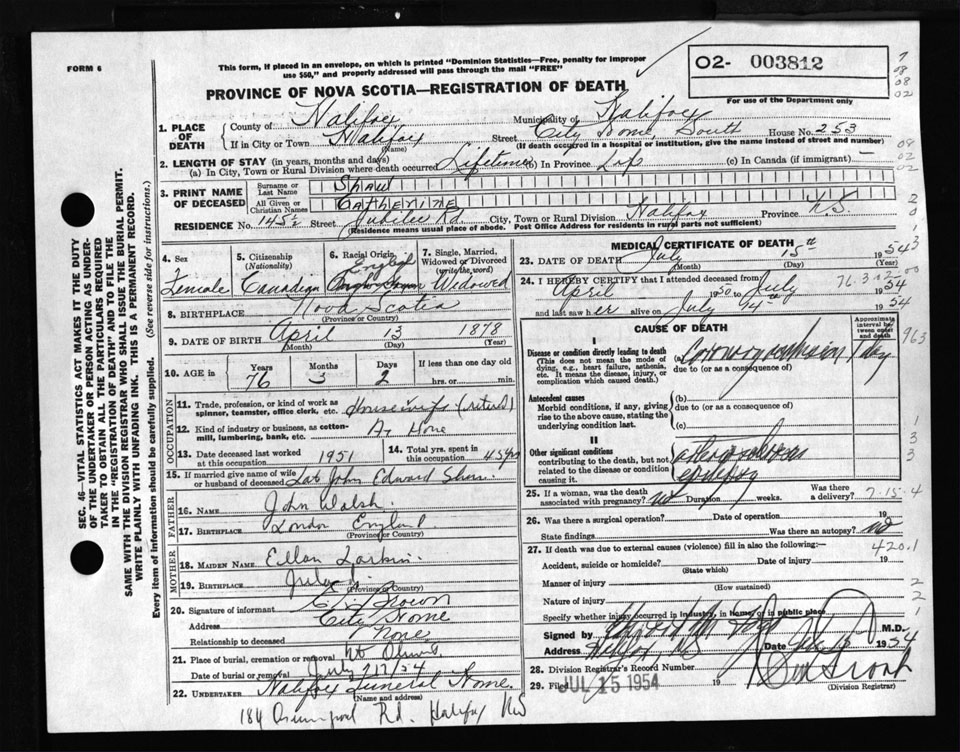 FORM 6
This form, if placed in an envelope, on which is printed "Dominion Statistics—Free, penalty for improper
use $50," and properly addressed will pass through the mail "FREE"
O2- 003812
For use of the Department only
PROVINCE OF NOVA SCOTIA—REGISTRATION OF DEATH
1. PLACE OF DEATH
County of Halifax
Municipality of Halifax
If in City or Town Halifax
(Name)
Street City Home, South House No. 253
(If death occurred in a hospital or institution, give the name instead of street and number)
2. LENGTH OF STAY (in years, months and days)
(a) In City, Town or Rural Division where death occurred Lifetime (b) In Province Life (c) In Canada (if immigrant) —
3. PRINT NAME OF DECEASED
Surname or Last Name Shaw
All Given or Christian Names Catherine
RESIDENCE No. 145½ Street Jubilee Rd. City, Town or Rural Division Halifax Province N.S.
(Residence means usual place of abode. Post Office Address for residents in rural parts not sufficient)
4. Sex
Female
5. Citizenship
(Nationality)
Canadian
6. Racial Origin
English
7. Single, Married,
Widowed or Divorced
(write the word)
Widowed
8. BIRTHPLACE Nova Scotia
(Province or Country)
9. DATE OF BIRTH April 13 1878
(Month) (Day) (Year)
10. AGE in
Years Months Days
76 3 2
If less than one day old
hrs. or min.
OCCUPATION
11. Trade, profession, or kind of work as
spinner, teamster, office clerk, etc. Housewife (retired)
12. Kind of industry or business, as cotton-
mill, lumbering, bank, etc. At Home
13. Date deceased last worked
at this occupation 1951
14. Total yrs. spent in
this occupation 45 yrs
15. If married give name of wife
or husband of deceased Late John Edward Shaw
FATHER
16. NAME John Walsh
17. BIRTHPLACE London England
(Province or Country)
MOTHER
18. MAIDEN NAME Ellen Larkin
19. BIRTHPLACE
(Province or Country)
20. Signature of informant
Address City Home
Relationship to deceased None
21. Place of burial, cremation or removal Mt Olivet
Date of burial or removal July 17/54
22. UNDERTAKER Halifax Funeral Home
(Name and address)
184 Rd. Halifax NS
MEDICAL CERTIFICATE OF DEATH
23. DATE OF DEATH July 15th 1954
(Month) (Day)
24. I HEREBY CERTIFY that I attended deceased from
April 1950 to July 1954
and last saw her alive on July 14th 1954
CAUSE OF DEATH
Approximate
interval be-
tween onset
and death
I
Disease or condition directly leading to death
(This does not mean the mode of
dying, e.g., heart failure, asthenia,
etc. It means the disease, injury, or
complication which caused death.)
(a) Coronary occlusion 1 day
due to (or as a consequence of)
Antecedent causes
Morbid conditions, if any, giving
rise to the above cause, stating the
underlying condition last.
(b)
due to (or as a consequence of)
(c)
II
Other significant conditions
contributing to the death, but not
related to the disease or condition
causing it.
epilepsy
25. If a woman, was the death
associated with pregnancy? no Duration weeks. Was there
a delivery?
26. Was there a surgical operation? Date of operation 19
State findings Was there an autopsy? no
27. If death was due to external causes (violence) fill in also the following:—
Accident, suicide or homicide? Date 19
(State which)
Manner of injury
(How sustained)
Nature of injury
Specify whether injury occurred in industry, in home or in public place
Signed by M.D.
Address Halifax, NS Date 1954
28. Division Registrar's Record Number
29. Filed JUL 15 1954 19
(Division Registrar)
SEC. 46—VITAL STATISTICS ACT MAKES IT THE DUTY
OF THE UNDERTAKER OR PERSON ACTING AS UNDER-
TAKER TO OBTAIN ALL THE PARTICULARS REQUIRED
IN THE "REGISTRATION OF DEATH" AND TO FILE THE
SAME WITH THE DIVISION REGISTRAR WHO SHALL ISSUE THE BURIAL PERMIT.
WRITE PLAINLY WITH UNFADING INK. THIS IS A PERMANENT RECORD.
Every item of information should be carefully supplied. (See reverse side for instructions.)
7
08
08
02
08
02
963
7-15-4
420.1